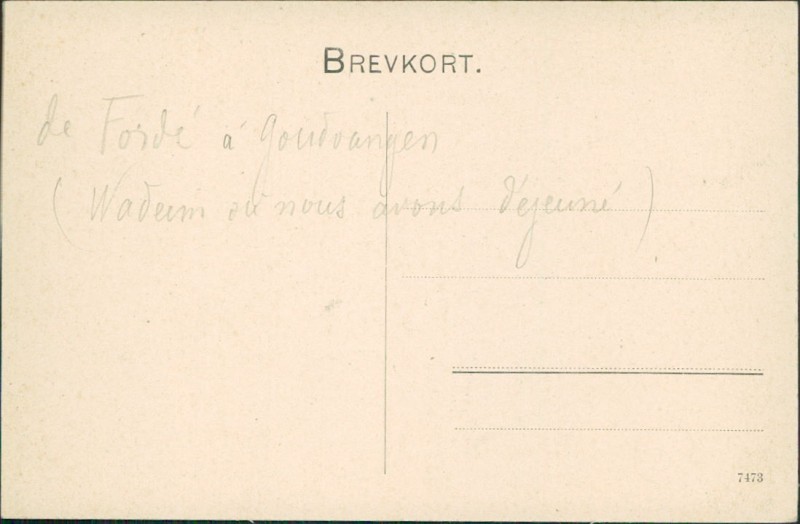 BREVKORT.
de Fordé à Goudvangen
(Wadeim où nous avons déjeuné)
7473